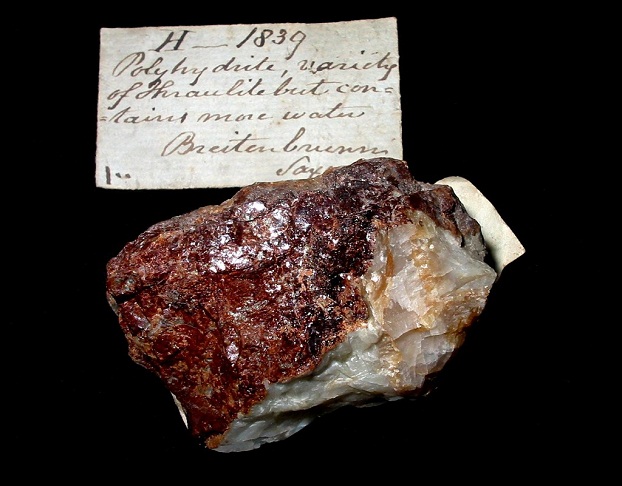 H — 1839
Polyhydrite, variety
of Thraulite but con=
=tains more water
Breitenbrunn